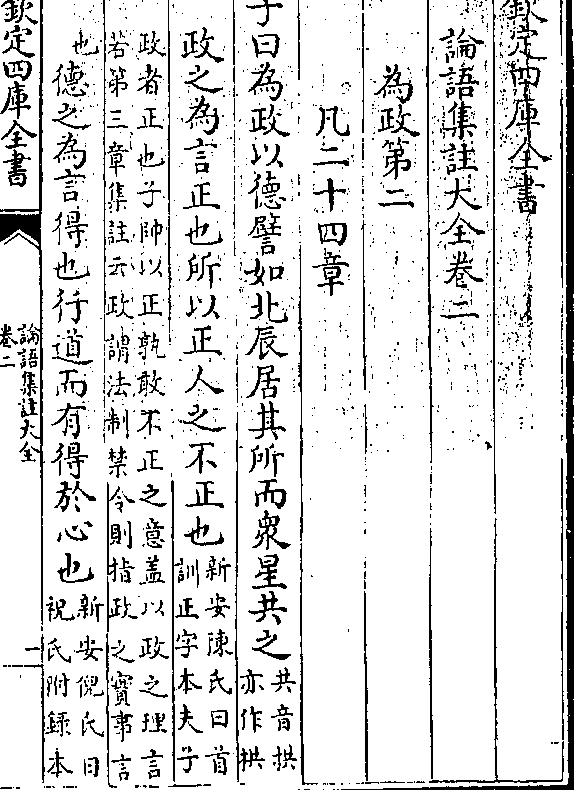 欽定四庫全書
論語集註大全卷二
為政第二
凡二十四章
子曰為政以德譬如北辰居其所而衆星共之
共音拱
亦作拱
政之為言正也所以正人之不正也
新安陳氏曰首
訓正字本夫子
政者正也子帥以正孰敢不正之意蓋以政之理言
若第三章集註云政謂法制禁令則指政之實事言
也
德之為言得也行道而有得於心也
新安倪氏曰
祝氏附錄本
欽定四庫全書
論語集註大全
卷二
一